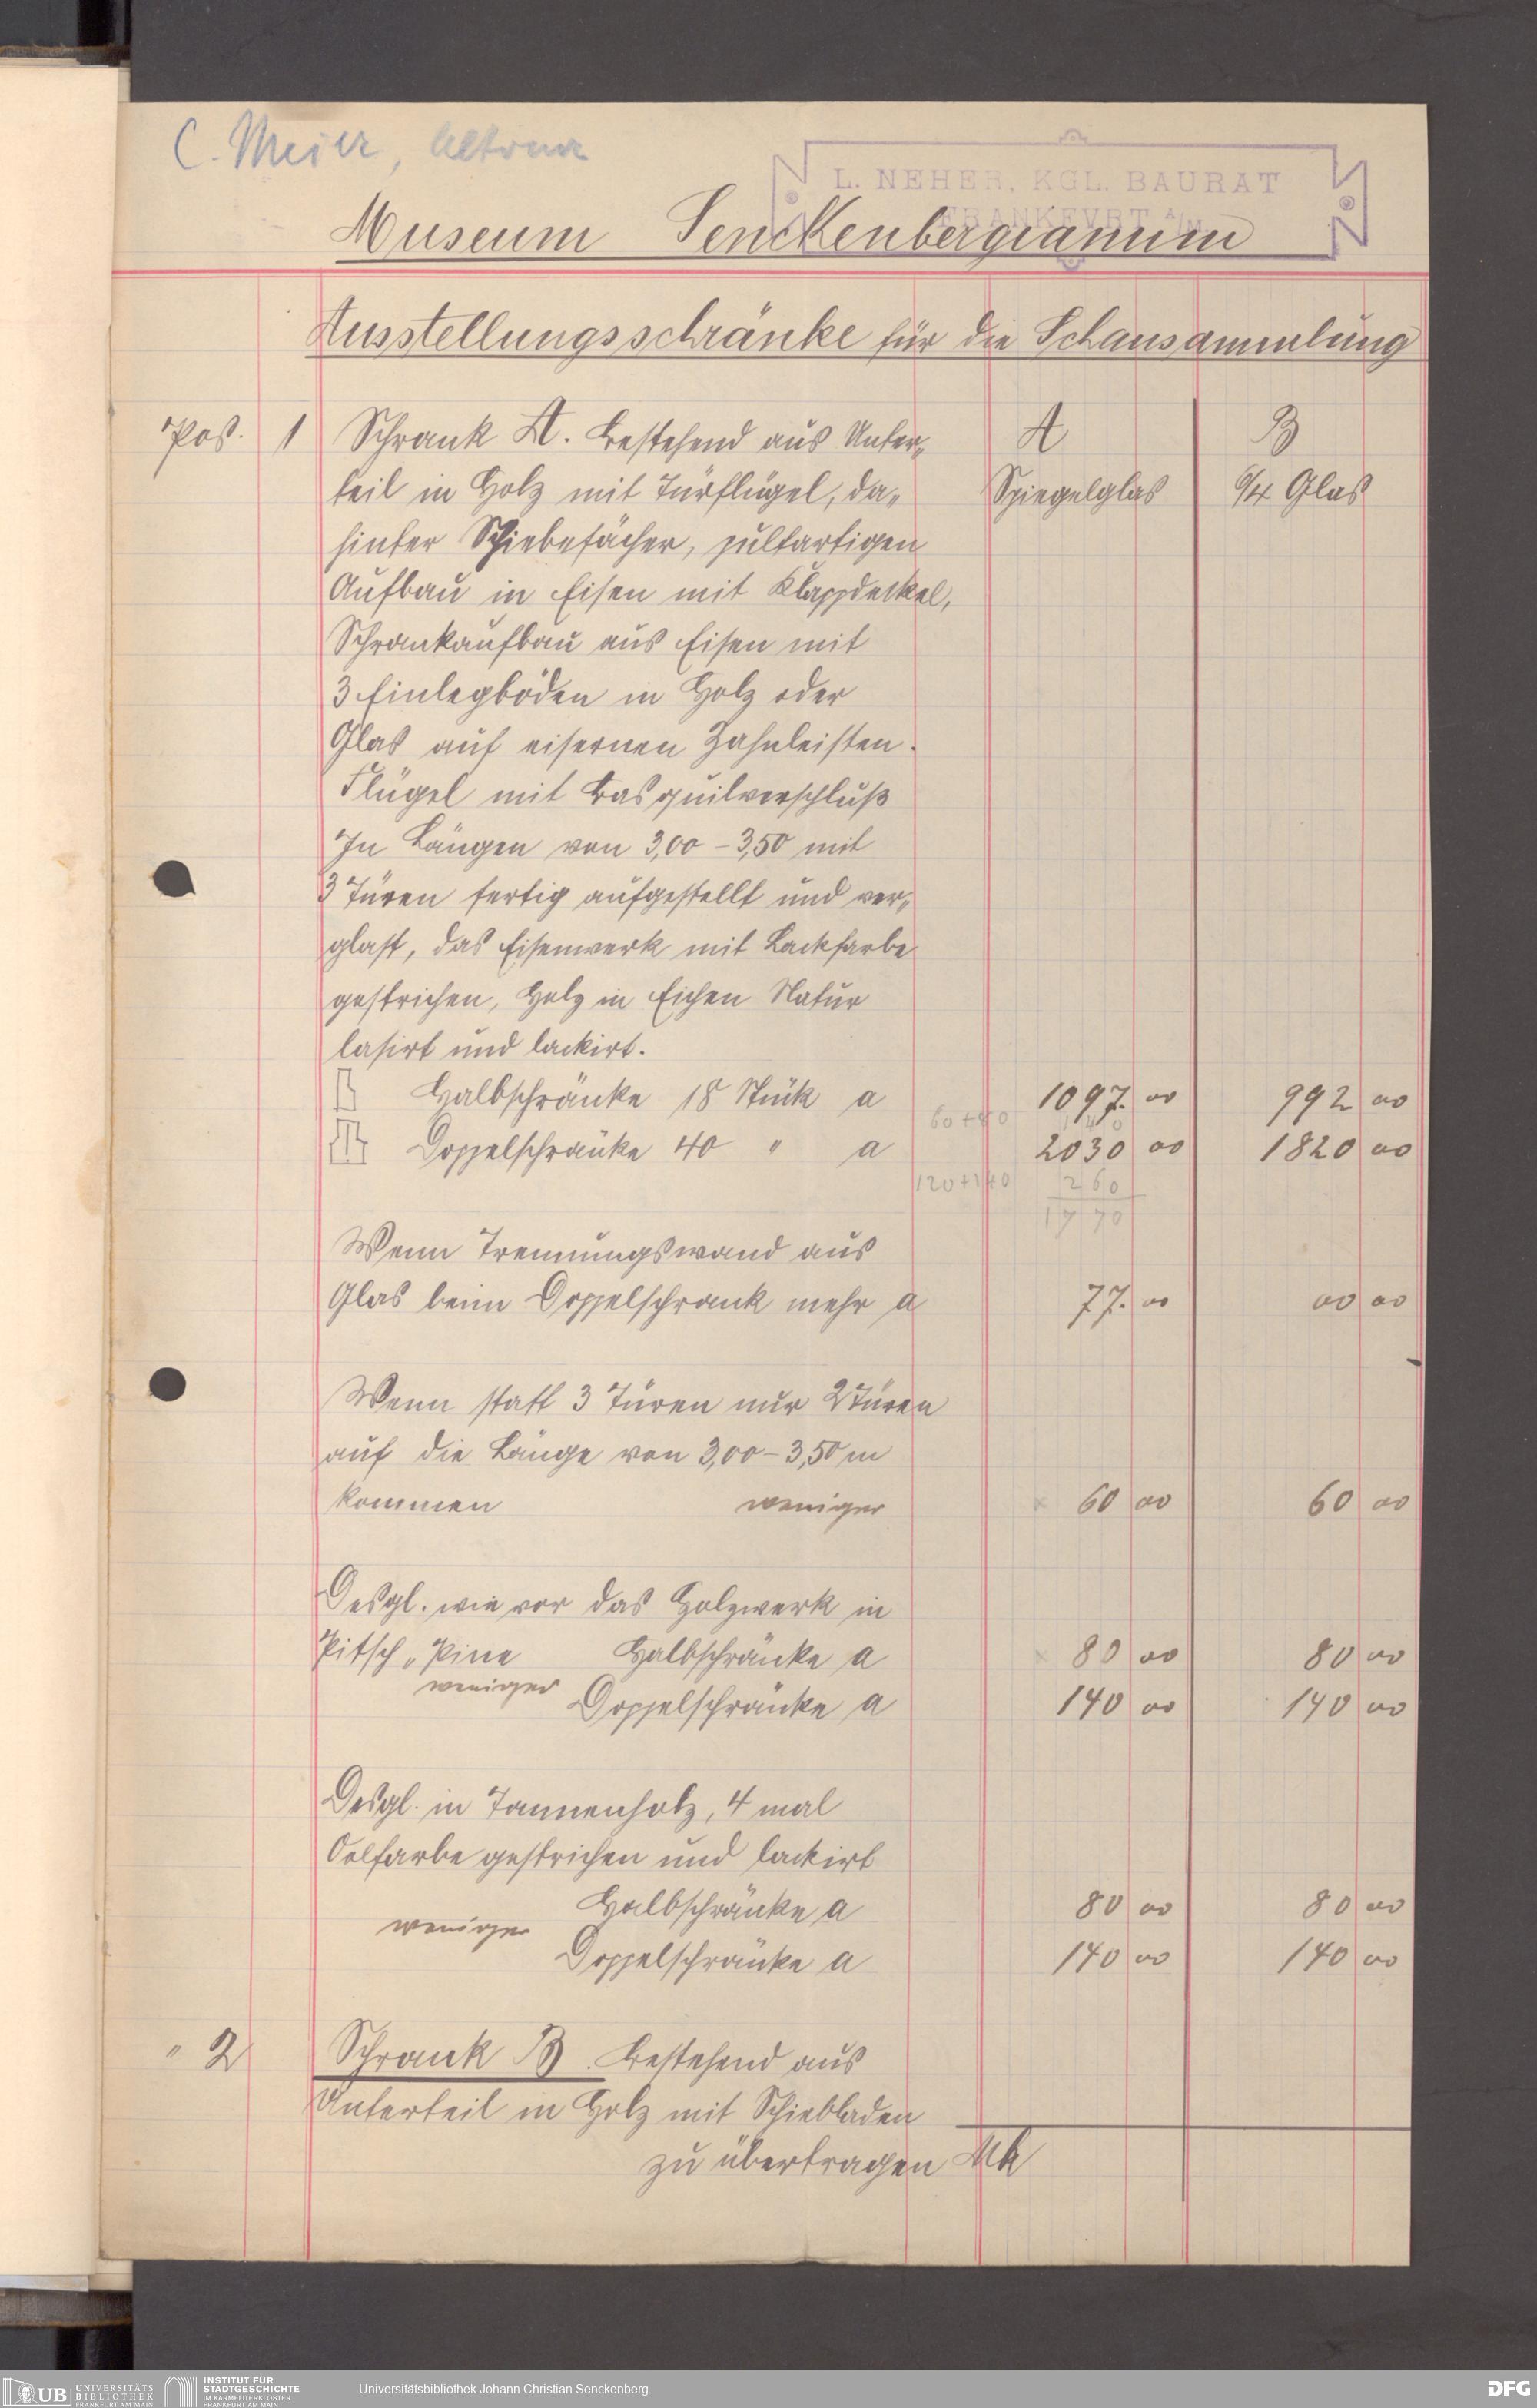 C. Meier, Altona
L. NEHER, KGL. BAURAT
FRANKFVRT A/M
Museum Senckenbergianum
Ausstellungsschränke für die Schausammlung
Pos. 1 Schrank A. Bestehend aus Unter„ A B
teil in Holz mit Türflügel, da„ Spiegelglas 6/4 Glas
hinter Schiebefächer, pultartigen
Aufbau in Eisen mit Klappdeckel,
Schrankaufbau aus Eisen mit
3 Einlegböden in Holz oder
Glas auf eisernen Zahnleisten.
Flügel mit Basquilverschluß
In Längen von 3,00 – 3,50 mit
3 Türen fertig aufgestellt und ver„
glast, das Eisenwerk mit Lackfarbe
gestrichen, Holz in Eichen Natur
lasirt und lackirt.
Halbschränke 18 Stück a 1097. 00 992 00
Doppelschränke 40 " a 2030 00 1820 00
120+140 260
1770
Wenn Trennungswand aus
Glas beim Doppelschrank mehr a 77. 00 00 00
Wenn statt 3 Türen nur 2 Türen
auf die Länge von 3,00 – 3,50 m
kommen weniger 60 00 60 00
Desgl. wie vor das Holzwerk in
Pitsch „ Pine Halbschränke a 80 00 80 00
weniger Doppelschränke a 140 00 140 00
Desgl. in Tannenholz, 4 mal
Oelfarbe gestrichen und lackirt
Halbschränke a 80 00 80 00
weniger
Doppelschränke a 140 00 140 00
" 2 Schrank B. Bestehend aus
Unterteil in Holz mit Schiebladen
zu übertragen Mk
UB UNIVERSITÄTS BIBLIOTHEK FRANKFURT AM MAIN
INSTITUT FÜR STADTGESCHICHTE IM KARMELITERKLOSTER FRANKFURT AM MAIN
Universitätsbibliothek Johann Christian Senckenberg
DFG